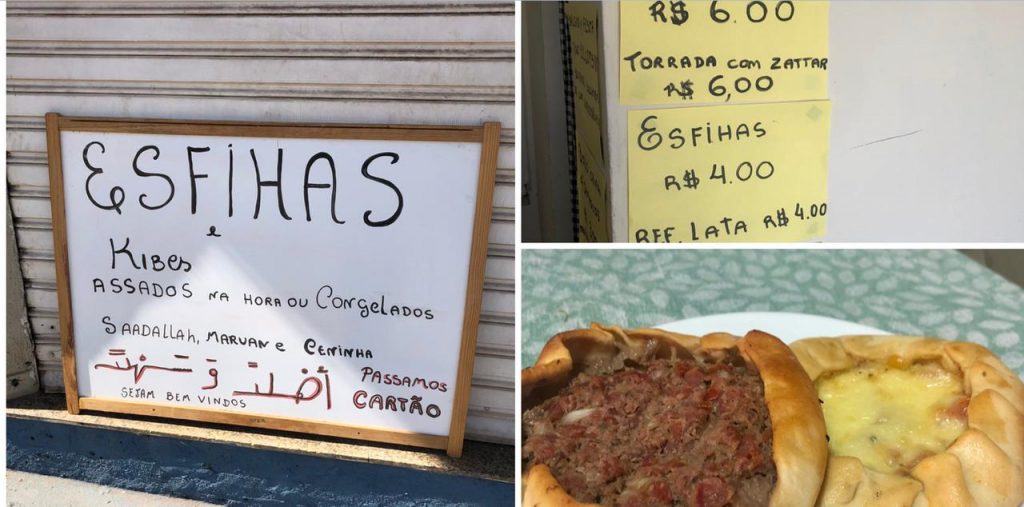 ESFIHAS
e
KIBES
ASSADOS NA HORA OU CONGELADOS
SAADALLAH, MARUAN e CENINHA
PASSAMOS
CARTÃO
SEJAM BEM VINDOS
R$ 6.00
TORRADA COM ZATTAR
R$ 6,00
ESFIHAS
R$ 4.00
REF. LATA R$ 4.00